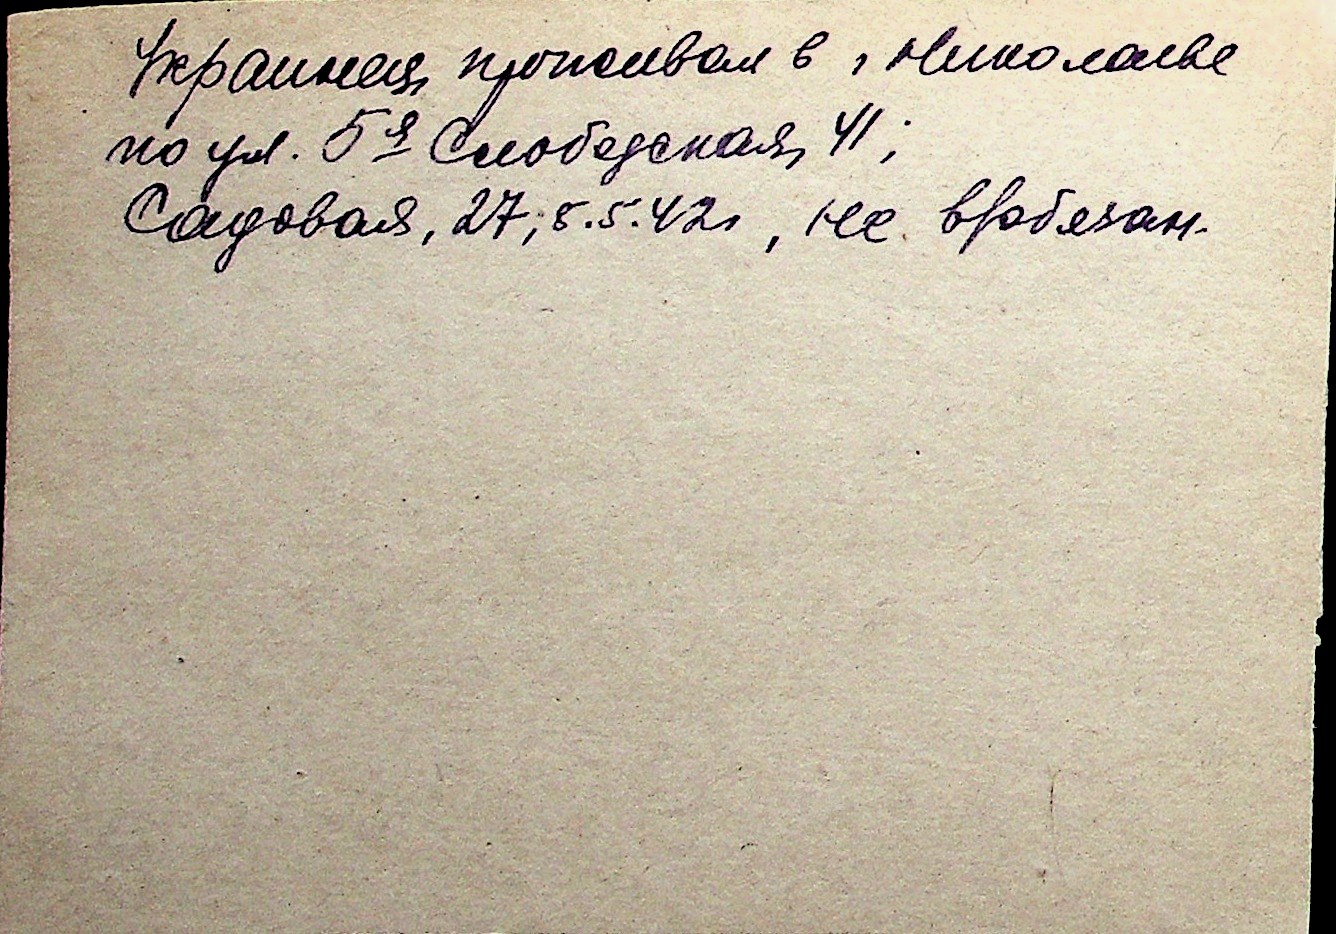 Украинец, проживал в г. Николаеве
по ул. 5я Слободская, 41;
Садовая, 27; 8.5.42г, не